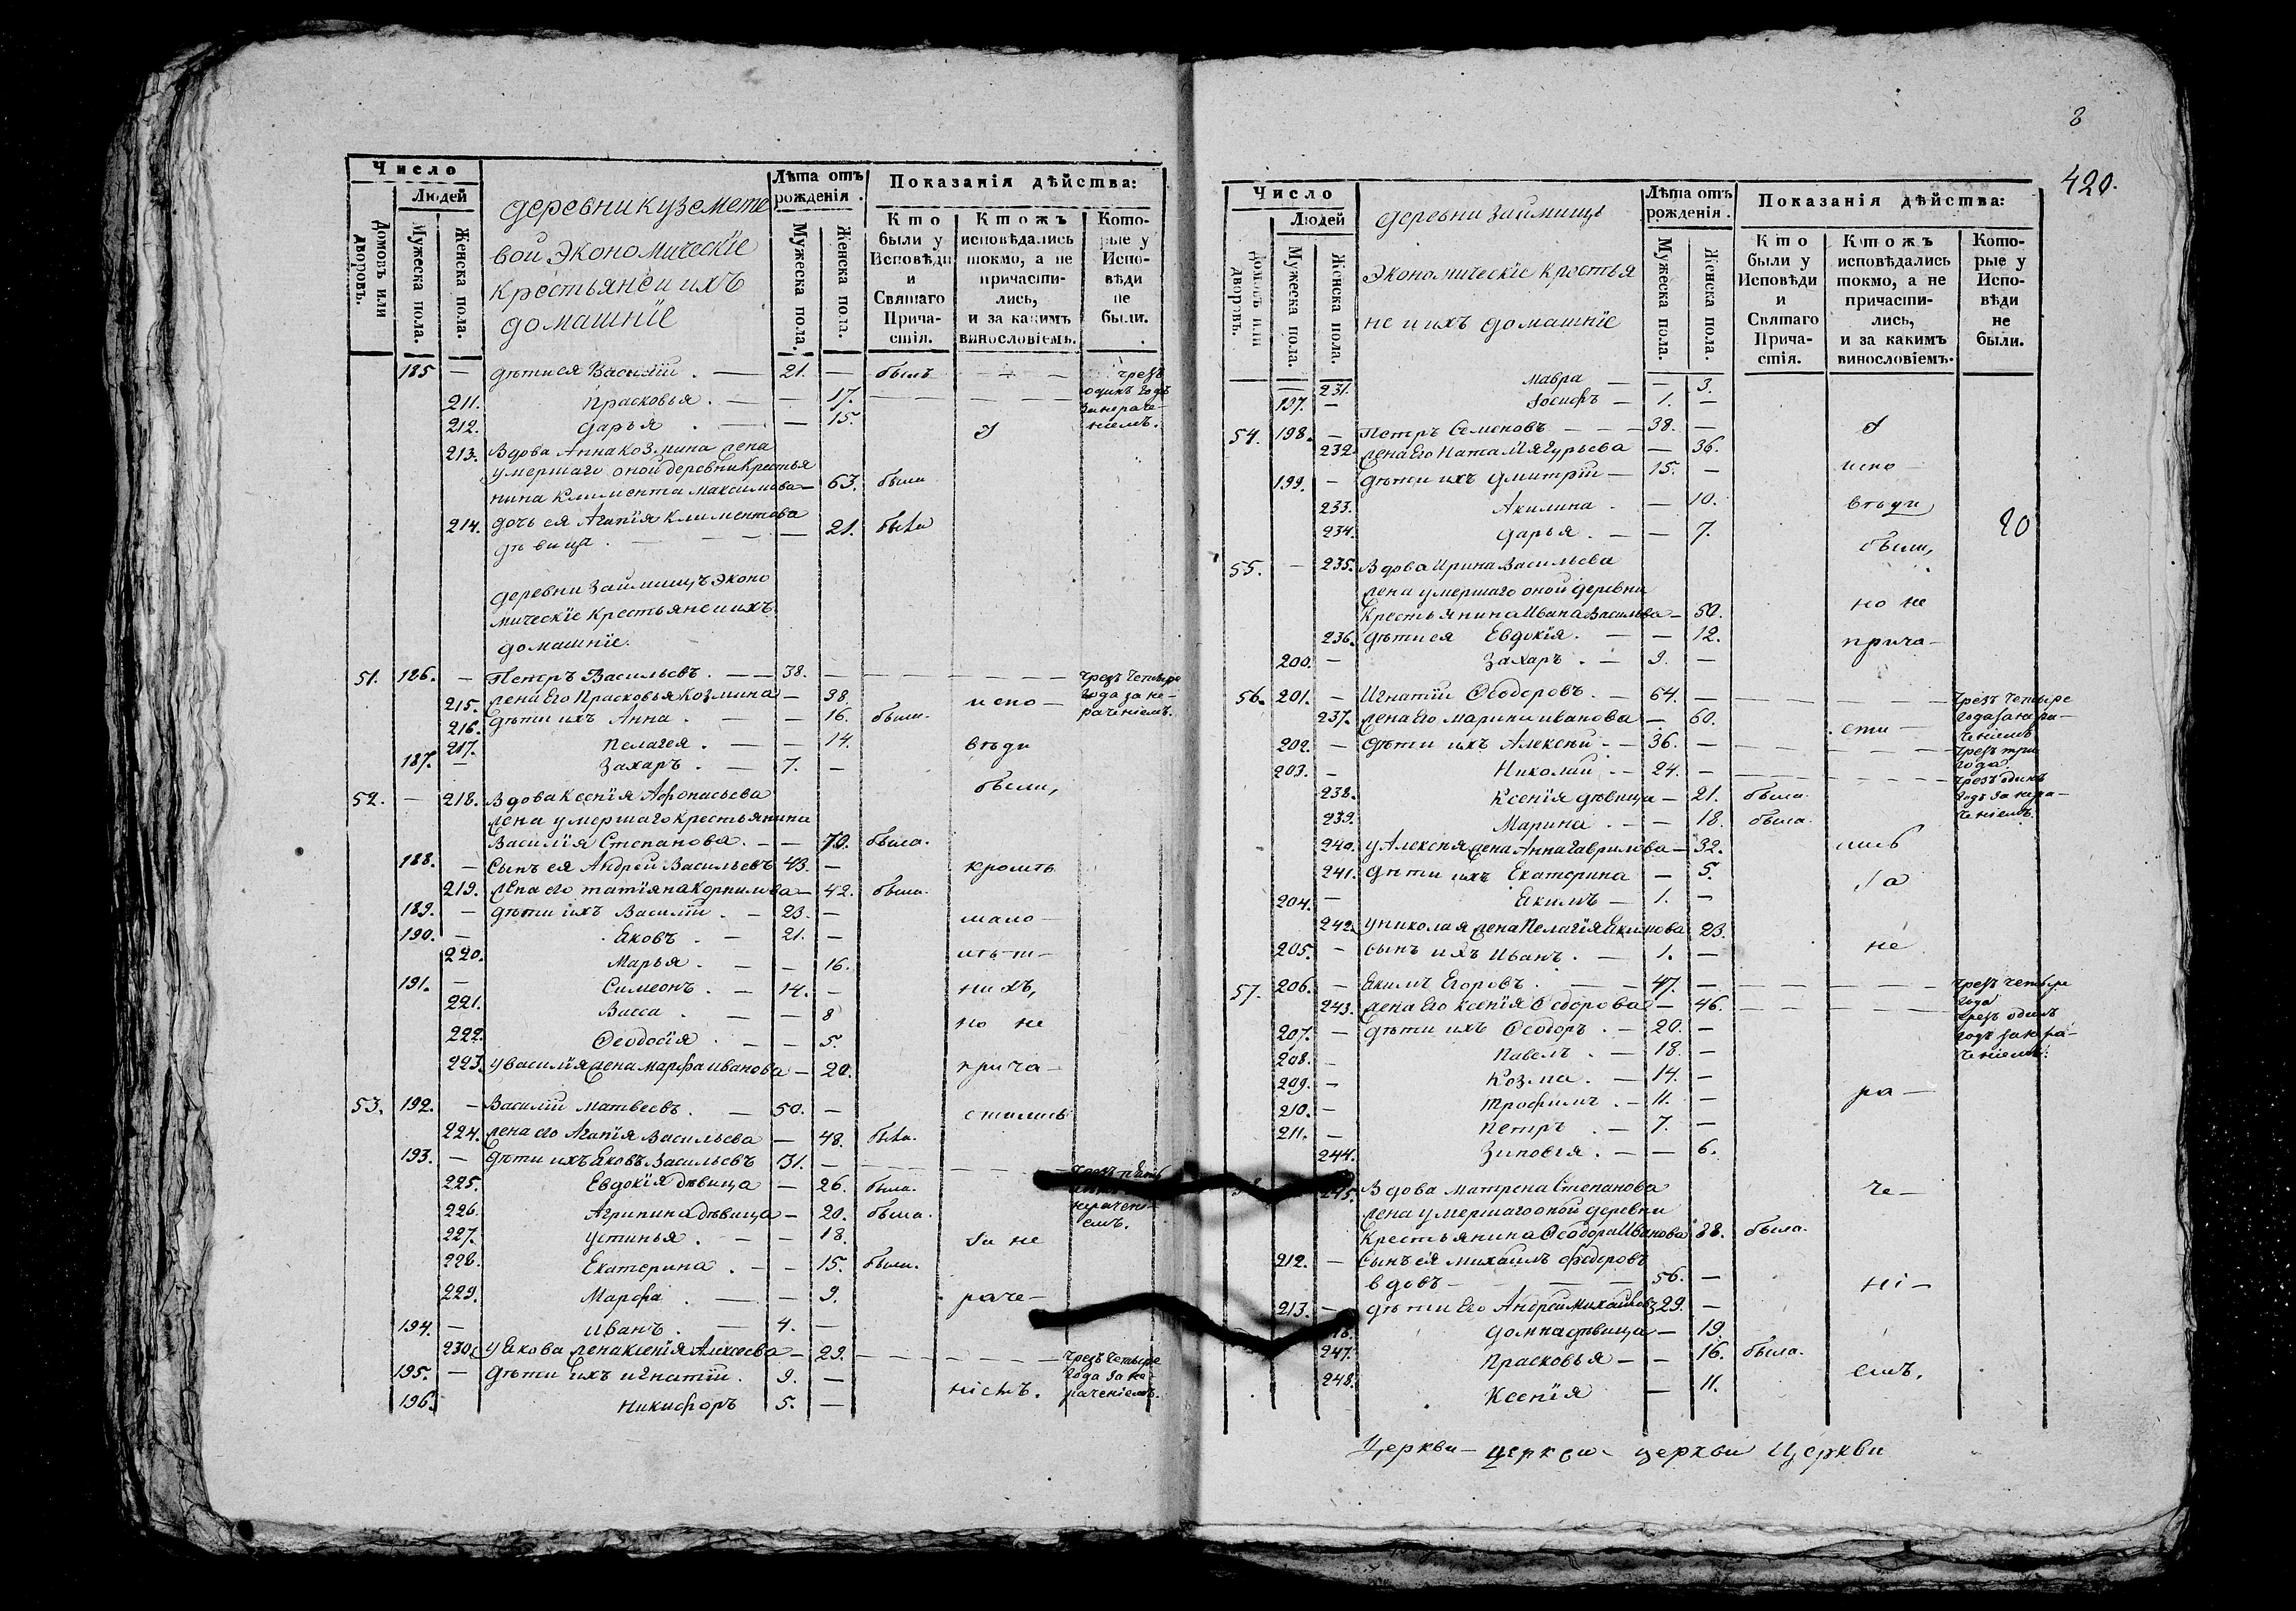 Число
Людей
Домовъ или дворовъ.
Мужеска пола.
Женска пола.
деревни куземете
вой Экономическїе
крестьяне и ихъ
домашнїе
Лѣта отъ рожденія.
Мужеска пола.
Женска пола.
Показанія дѣйства:
Кто были у Исповѣди и Святаго Причастія.
Ктожъ исповѣдались токмо, а не причастились, и за какимъ винословіемъ.
Которые у Исповѣди не были.
185 — дѣти ея Василїй . — 21. — былъ — — — чрезъ
211. Прасковья . — — 17. — — — — — одинъ годъ
212. Дарья . — — 15. за нераче-
ніемъ.
213. Вдова Анна Козмина жена
умершаго оной деревни крестья
нина Климента Максимова — 63. была
214. дочь ея Агапїя Климентова
дѣвица . — — — — 21. была
деревни Займищъ эконо
мическїе крестьяне и ихъ
домашнїе.
51. 186. — Петръ Васильевъ . — — 38. — — — — — чрезъ четыре
215. жена Его Прасковья Козмина — 38. испо — года за не-
216. дѣти ихъ Анна . — — 16. была. раченіемъ.
217. Пелагея . — — 14. вѣди
187. — Захаръ . — 7. —
были,
52. — 218. Вдова Ксенїя Афонасьева
жена умершаго крестьянина
Василїя Степанова . — — 70. была.
188. — Сынъ ея Андрей Васильевъ 43. — кромѣ
219. жена его татїяна Корнилова — 42. была.
189. — дѣти ихъ Василїй . — 23. — мало-
190. — Яковъ . — 21. —
220. Марья . — — 16. лѣт-
191. — Симеонъ . — 14. — нихъ,
221. Васса . — — 8
222. Ѳеодосїя . — — 5. но не
223. у Василїя жена марфа иванова — 20. прича —
53. 192. — Василїй матвеевъ . — 50. — стились
224. жена его Агапїя Васильева — 48. была.
193. — дѣти ихъ Яковъ Васильевъ 31. — — — — — чрезъ пять
225. Евдокїя дѣвица — 26. была.
226. Агрипина дѣвица — 20. была. нерачені-
емъ.
227. устинья . — — 18. за не
228. Екатерина . — — 15. была.
229. Марфа . — — 9. раче —
194. — иванъ . — 4. —
230. у Якова жена ксенїя Алексеева — 29. — — — — — чрезъ четыре
195. — дѣти ихъ игнатїй . 9. — года за не-
196. никифоръ 5. — нїемъ. раченіемъ.
8
420.
Число
Людей
Домовъ или дворовъ.
Мужеска пола.
Женска пола.
деревни Займищъ
Экономическїе крестья
не и ихъ домашнїе
Лѣта отъ рожденія.
Мужеска пола.
Женска пола.
Показанія дѣйства:
Кто были у Исповѣди и Святаго Причастія.
Ктожъ исповѣдались токмо, а не причастились, и за какимъ винословіемъ.
Которые у Исповѣди не были.
— 231. Мавра — — 3.
197. — Iосифъ — 1. —
54. 198. — Петръ Семеновъ — — — 38. —
232. жена Его Наталїя Гурьева — 36.
199. — дѣти ихъ Дмитрїй — 15. — испо —
233. Акилина . — 10. вѣди
234. Дарья . — — 7.
были,
55. — 235. Вдова Ирина Васильева
жена умершаго оной деревни
крестьянина Ивана Васильева — 50. но не
236. дѣти ея Евдокїя . — — 12. прича —
200. — Захаръ . — 9. —
56. 201. — Игнатїй Ѳеодоровъ . — 64. — — — — — чрезъ четыре
237. жена Его марина иванова — 60. сти — года за нера-
ченіемъ
202. — дѣти ихъ Алексѣй . — 36. — — — — — чрезъ три
года.
203. — Николай . — 24. — — — — — чрезъ одинъ
238. Ксенїя дѣвица — 21. была. годъ за нера-
239. Марина . — — 18. была. ченіемъ.
240. у Алексея жена Анна Гаврилова — 32. лись
241. дѣти ихъ Екатерина — 5. за
204. — Екимъ — 1. —
242. у николая жена Пелагїя Екимова 23.
205. — сынъ ихъ Иванъ . — 1. — не
57. 206. — Екимъ Егоровъ . — — 47. — — — — — чрезъ четыре
года
243. жена Его ксенїя Ѳеодорова — 46. — — — — чрезъ одинъ
207. — дѣти ихъ Ѳеодоръ . — 20. — годъ за нера-
208. — Павелъ . — 18. — ченіемъ.
209. — Козма . — 14. —
210. — трофимъ . — 11. — ра —
211. — петръ . — 7. —
244. Зиновїя . — — 6.
245. Вдова матрена Степанова че —
жена умершаго оной деревни
крестьянина Ѳеодора Иванова 88. была.
212. — Сынъ ея михаилъ ѳедоровъ
вдовъ — — — 56. — нї —
213. — дѣти Его Андрей михайловъ 29. —
домна дѣвица — 19.
247. Прасковья — — 16. была.
248. Ксенїя — 11. емъ.
Церкви — церкви — церкви Церкви